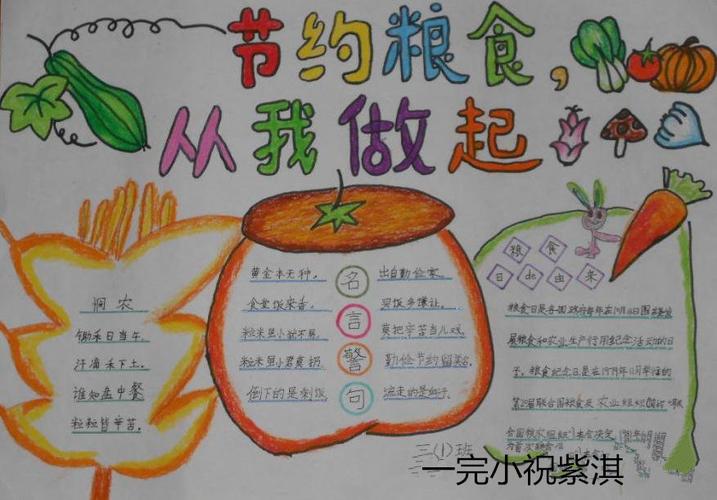 节约粮食，
从我做起
悯农
锄禾日当午，
汗滴禾下土。
谁知盘中餐
粒粒皆辛苦。
名言警句
黄金本无种， 出自勤俭家。
食堂饭菜香， 买饭多谦让。
粒米虽小 莫把辛苦当儿戏
粒米虽小君莫扔 勤俭节约留美名
倒下的是剩饭 流走的是血汗。
粮食
日de由来
粮食日是各国政府每年在10月16日围绕发
展粮食和农业生产行用纪念活动的日
子。粮食纪念日是在1979年11月举行的
第20届联合国粮食及农业组织
合国粮农组织 大会决定
三(1)班
一完小祝紫淇